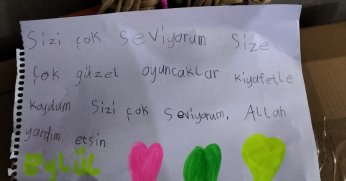 Sizi çok seviyorum Size
çok güzel oyuncaklar kiyafetle
koydum Sizi çok Seviyorum. Allah
yardım etsin
Eylül